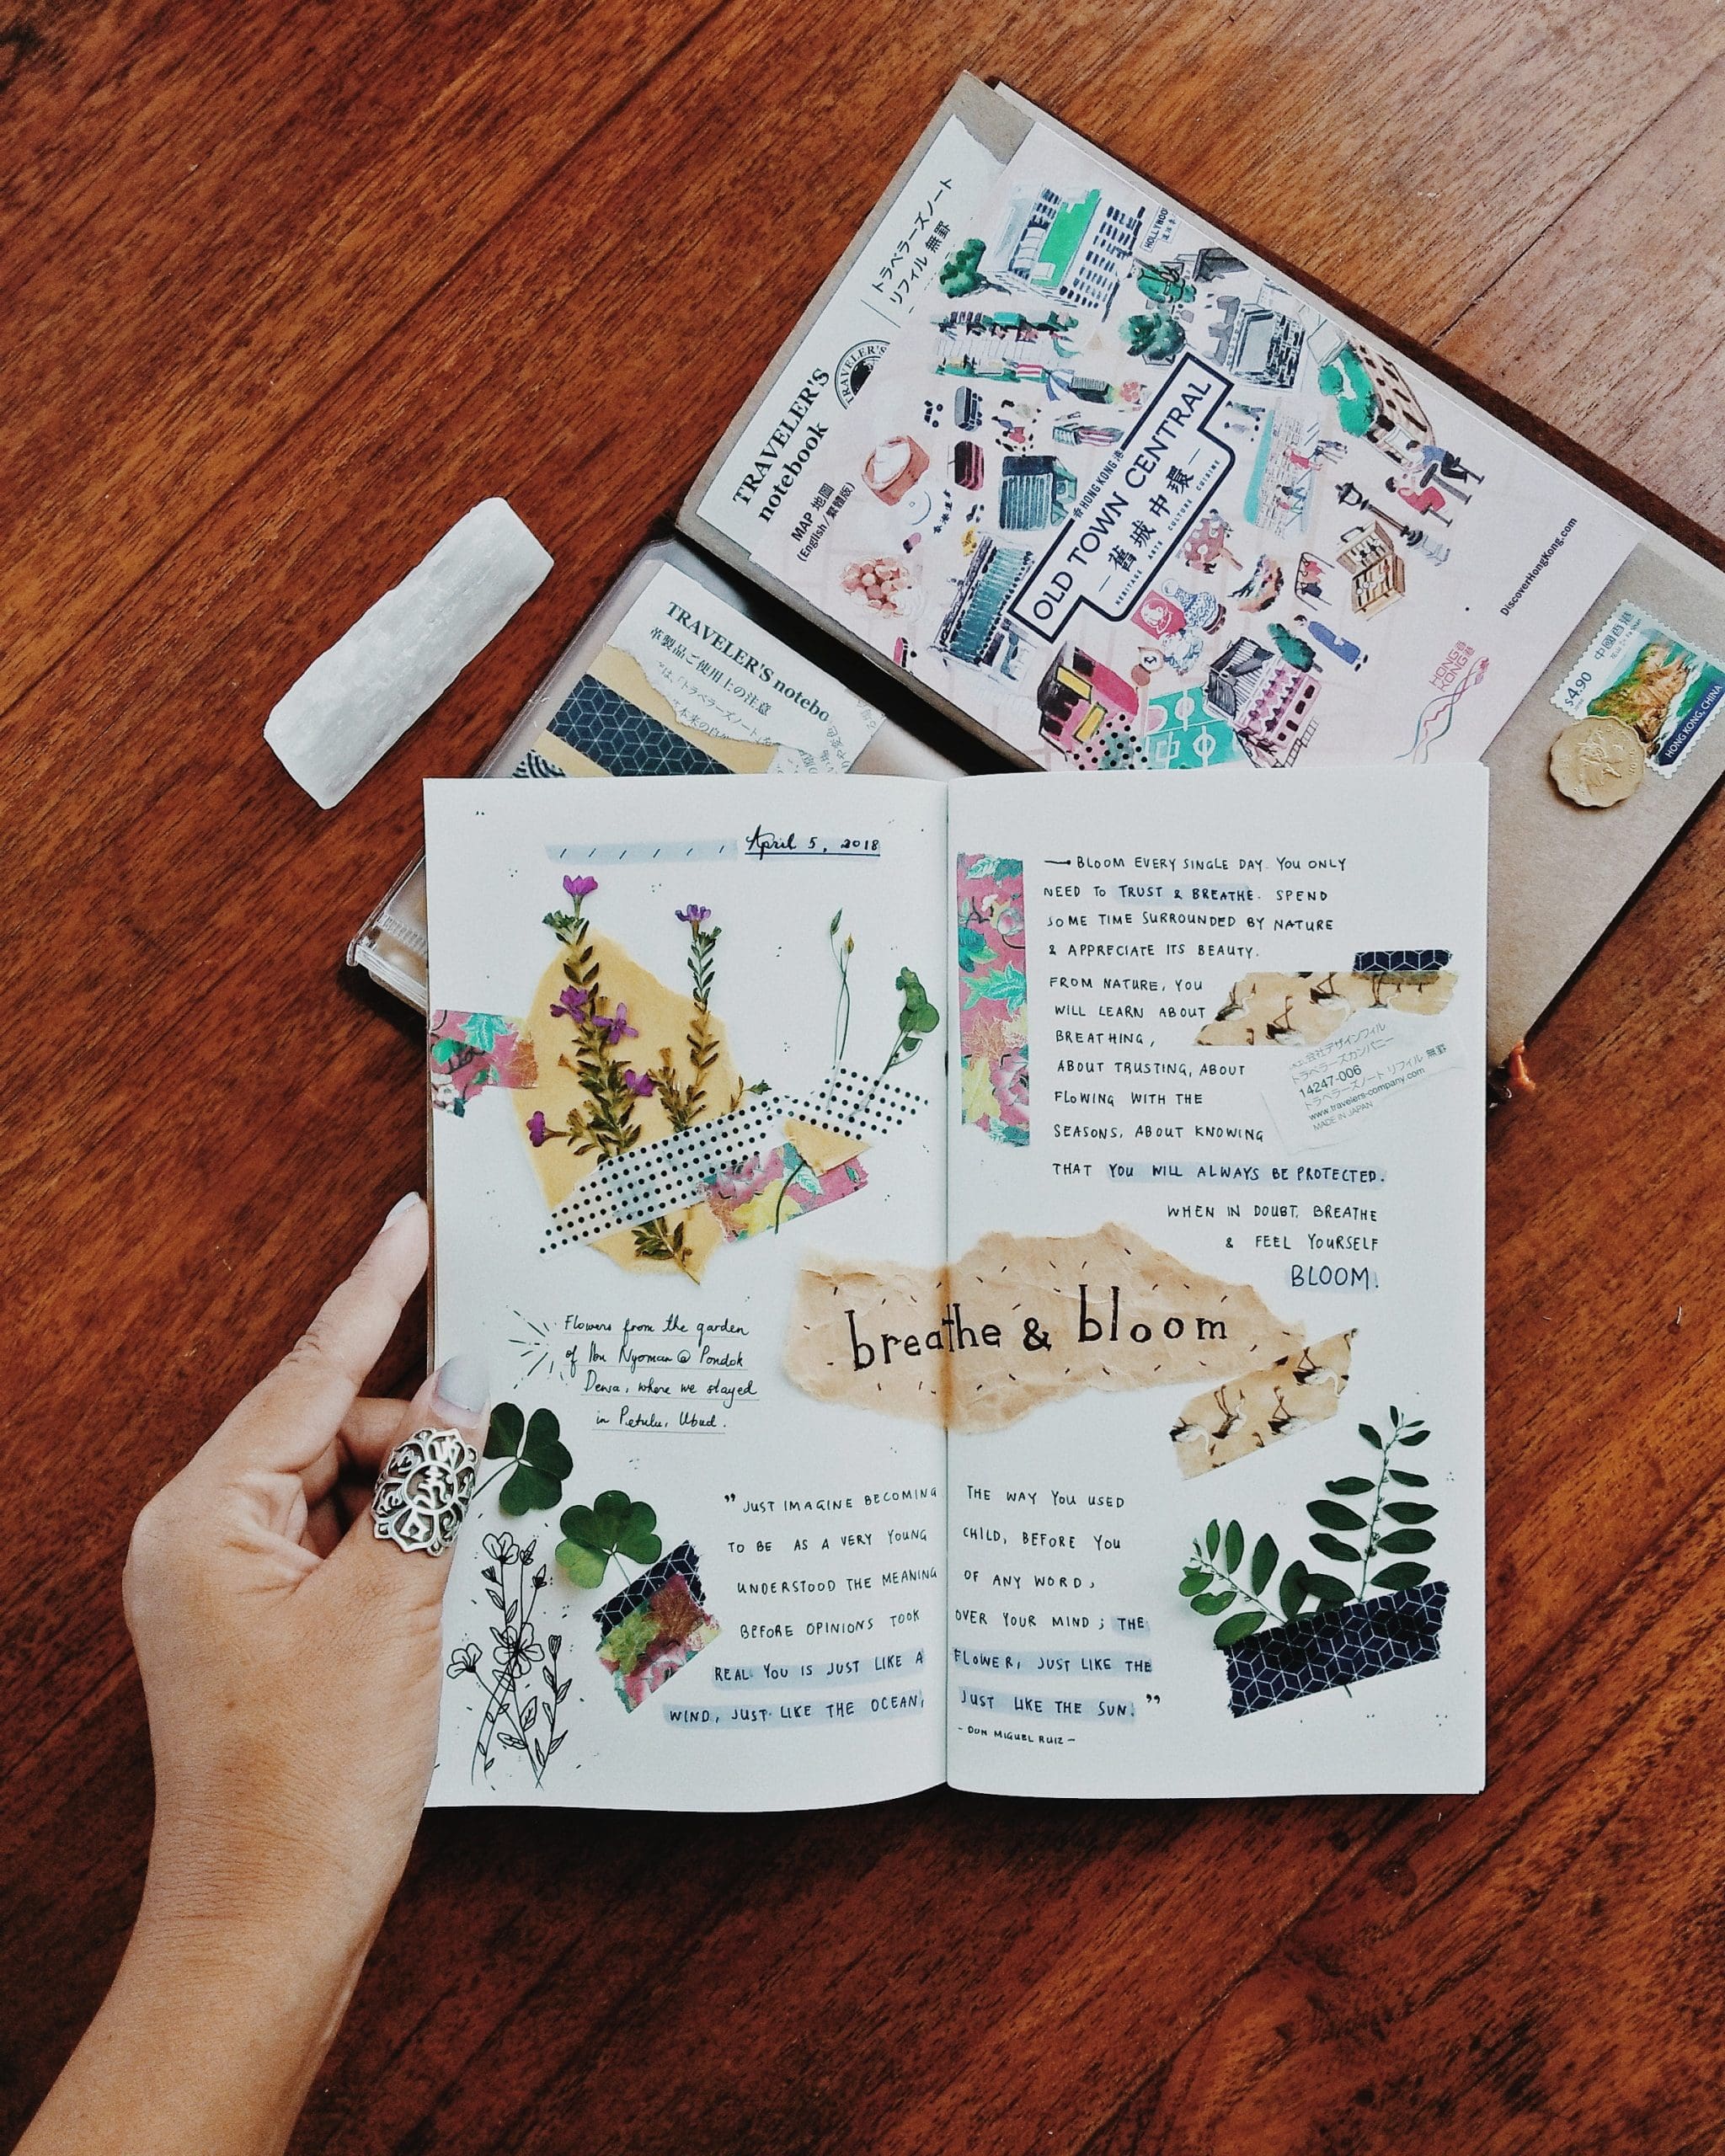 トラベラーズノート
リフィル 無罫
TRAVELER'S
TRAVELER'S
notebook
MAP 地圖
(English / 繁體版)
HOLLYWOOD
香 HONG KONG 港
OLD TOWN CENTRAL
舊城中環
HERITAGE ARTS CULTURE CUISINE
DiscoverHongKong.com
HONG KONG 香港
中國香港
$4.90
HONG KONG, CHINA
TRAVELER'S notebo
革製品ご使用上の注意
April 5, 2018
Flowers from the garden
of Ibu Nyoman @ Pondok
Dewa, where we stayed
in Petulu, Ubud.
BLOOM EVERY SINGLE DAY. YOU ONLY
NEED TO TRUST & BREATHE. SPEND
SOME TIME SURROUNDED BY NATURE
& APPRECIATE ITS BEAUTY.
FROM NATURE, YOU
WILL LEARN ABOUT
BREATHING,
ABOUT TRUSTING, ABOUT
FLOWING WITH THE
SEASONS, ABOUT KNOWING
THAT YOU WILL ALWAYS BE PROTECTED.
WHEN IN DOUBT, BREATHE
& FEEL YOURSELF
BLOOM.
会社デザインフィル
トラベラーズカンパニー
14247-006
トラベラーズノート リフィル 無罫
www.travelers-company.com
MADE IN JAPAN
breathe & bloom
"JUST IMAGINE BECOMING THE WAY YOU USED
TO BE AS A VERY YOUNG CHILD, BEFORE YOU
UNDERSTOOD THE MEANING OF ANY WORD,
BEFORE OPINIONS TOOK OVER YOUR MIND; THE
REAL YOU IS JUST LIKE A FLOWER, JUST LIKE THE
WIND, JUST LIKE THE OCEAN, JUST LIKE THE SUN."
- DON MIGUEL RUIZ -